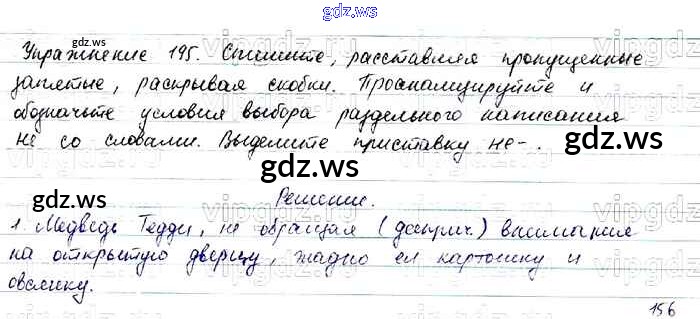 gdz.ws
Упражнение 195. Спишите, расставляя пропущенные
запятые, раскрывая скобки. Проанализируйте и
обозначьте условия выбора раздельного написания
не со словами. Выделите приставку не-.
gdz.ws
gdz.ws
gdz.ws
gdz.ws
Решение.
1. Медведь Тедди, не обращая (дееприч.) внимания
на открытую дверцу, жадно ел картошку и
овсянку.
gdz.ws
gdz.ws
156